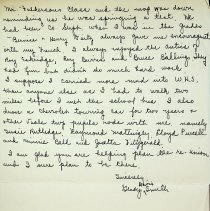 Mr. Pedersons Class and the map was down
reminding us he was springing a test. He
had been Co. Supt. when I was in the grades
Junior & Harry Fritz always gave me encouragement
with my lunch. I always enjoyed the antics of
Roy Kitridge, Roy Burris and Bruce Calling. They
had fun but didn't so much hard work.
I suppose I carried more mud into W.H.S.
than anyone else as I had to walk two
miles before I met the school bus. I also
drove a chevrolet touring car for two years &
other Vesta two pupils rode with me, namely
Susie Rutledge, Raymond Mattingly, Floyd Purcell
and Minnie Bell and Joetta Fitzgerald.
I am glad you are helping plan the re-union
and I sure plan to be there.
Sincerely,
Gladys